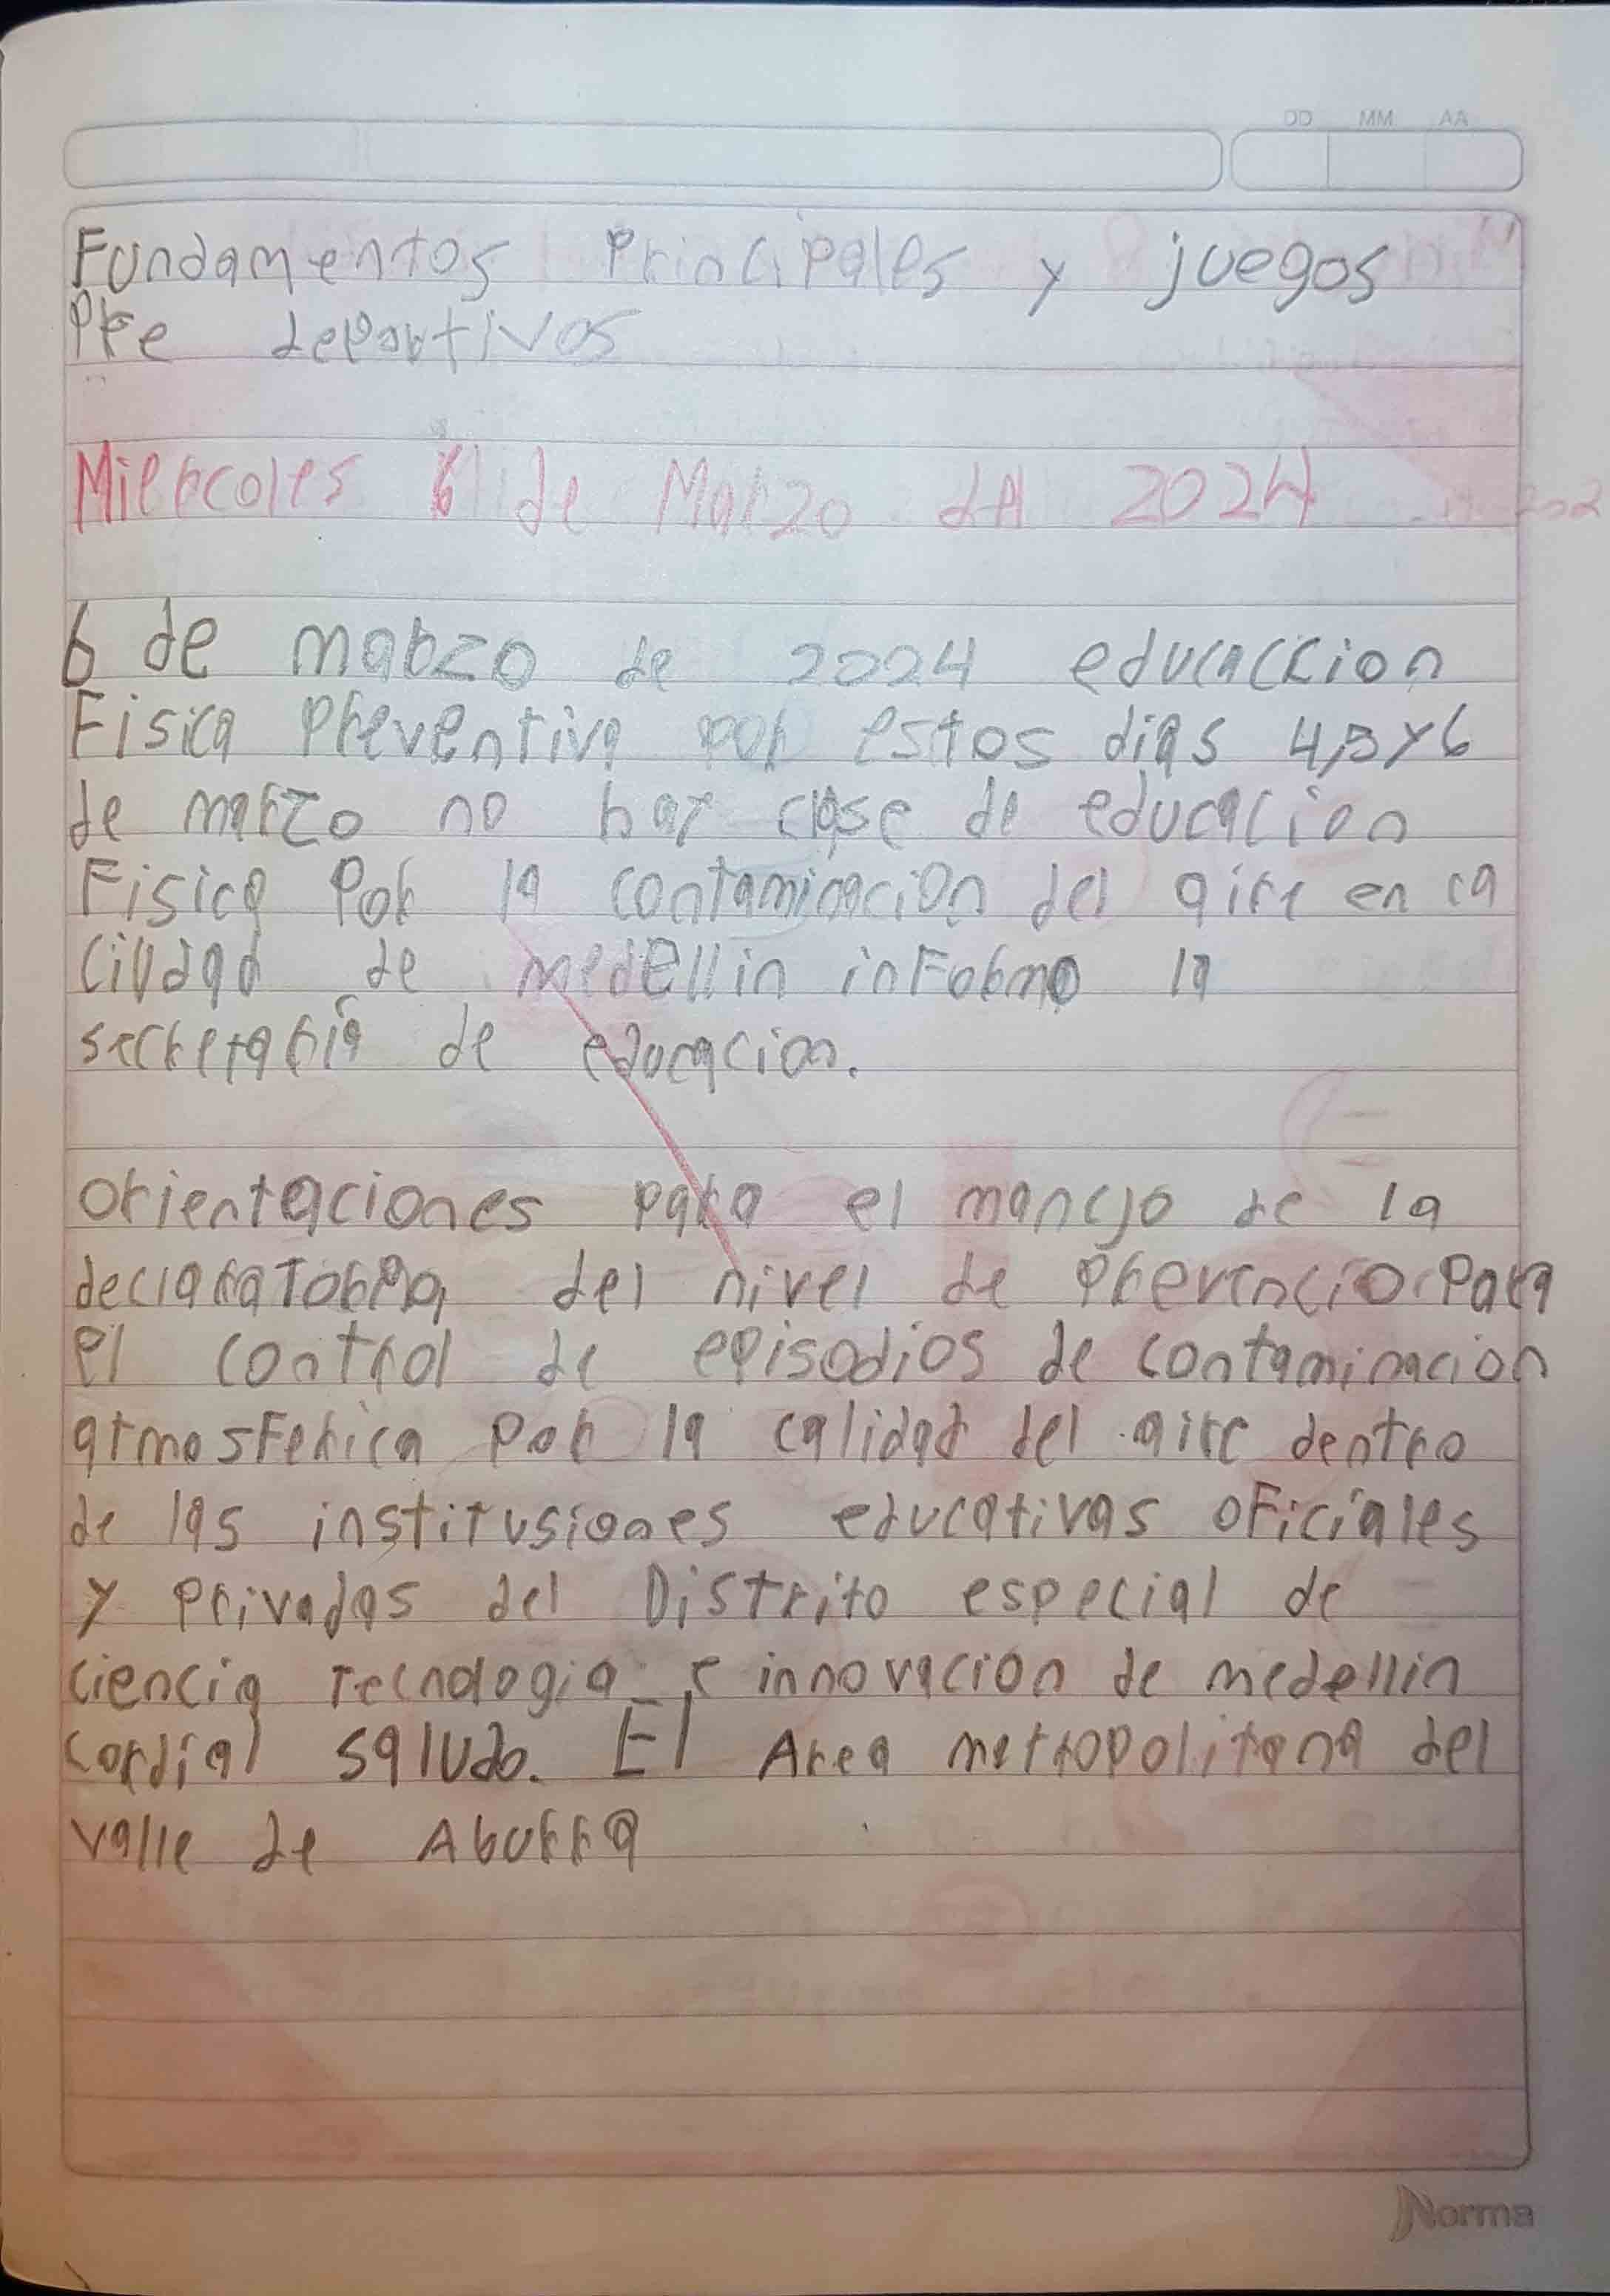 DD MM AA
Fundamentos Principales y juegos
Pre deportivos
Miercoles 6 de Marzo del 2024
6 de marzo de 2024 educaccion
Fisica Preventiva por estos dias 4,5 y 6
de marzo no hay clase de educacion
Fisica Por la contaminacion del aire en la
ciudad de medellin informo la
secretaría de educacion.
orientaciones para el manejo de la
declaratoria del nivel de Prevencio Para
el control de episodios de contaminacion
atmosferica Por la calidad del aire dentro
de las institusiones educativas oficiales
y Privadas del Distrito especial de
ciencia Tecnologia e innovacion de medellin
cordial saludo. El Area metropolitana del
valle de Aburra
Norma